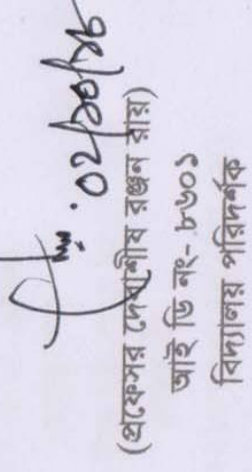 ০২/১০/১৮
(প্রফেসর দেবাশীষ রঞ্জন রায়)
আই ডি নং- ৮৬০১
বিদ্যালয় পরিদর্শক